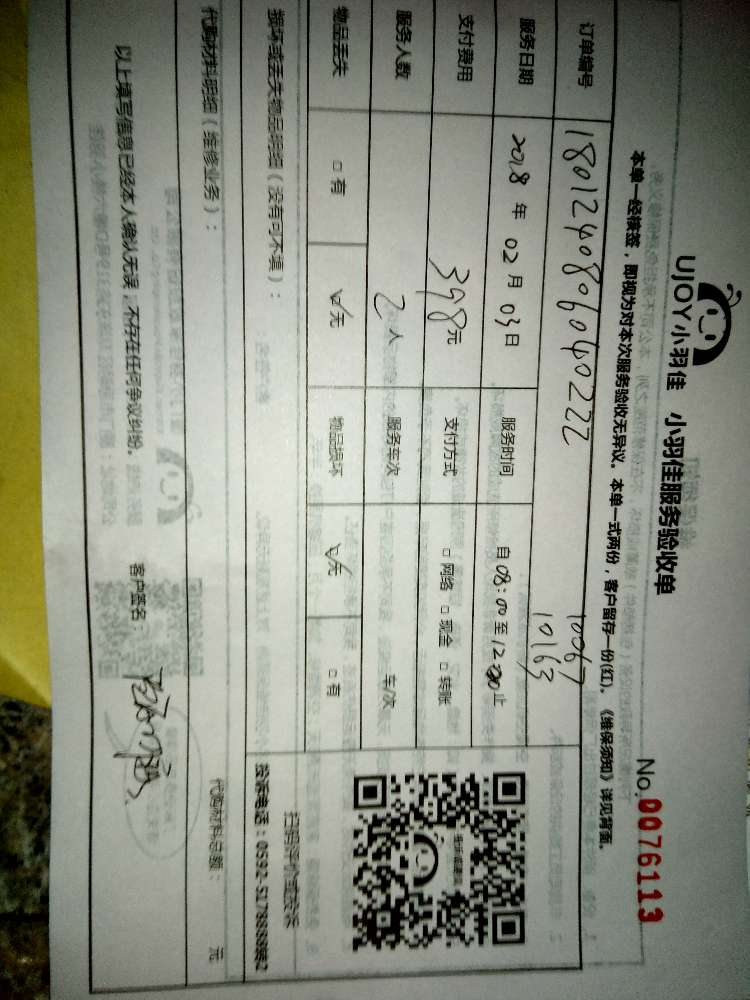 UJOY小羽佳 小羽佳服务验收单
No.0076113
本单一经接签，即视为对本次服务验收无异议。本单一式两份，客户留存一份(红)。《维保须知》详见背面。
订单编号 180124080604022 2
10067
10163
服务日期 2018 年 02 月 03 日 服务时间 自 08:00 至 12:00 止
支付费用 398 元 支付方式 □ 网络 □ 现金 □ 转账
服务人数 2 人 服务车次 车/次
物品丢失 □ 有 ☑ 无 物品损坏 ☑ 无 □ 有
损坏或丢失物品明细（没有可不填）：
扫码评价或投诉
投诉电话：0592-5178888转2
代购材料明细（维修业务）： 代购材料总额： 元
以上填写信息已经本人确认无误，不存在任何争议纠纷。 客户签名：